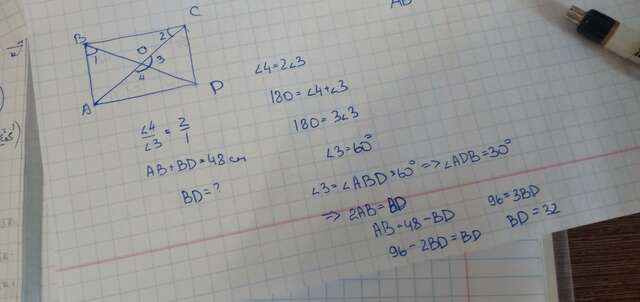 B
C
A
D
O
1
2
3
4
∠4/∠3 = 2/1
AB + BD = 48 cm
BD = ?
∠4 = 2∠3
180 = ∠4 + ∠3
180 = 3∠3
∠3 = 60°
∠3 = ∠ABD = 60° => ∠ADB = 30°
=> 2AB = BD
AB = 48 - BD
96 - 2BD = BD
96 = 3BD
BD = 32